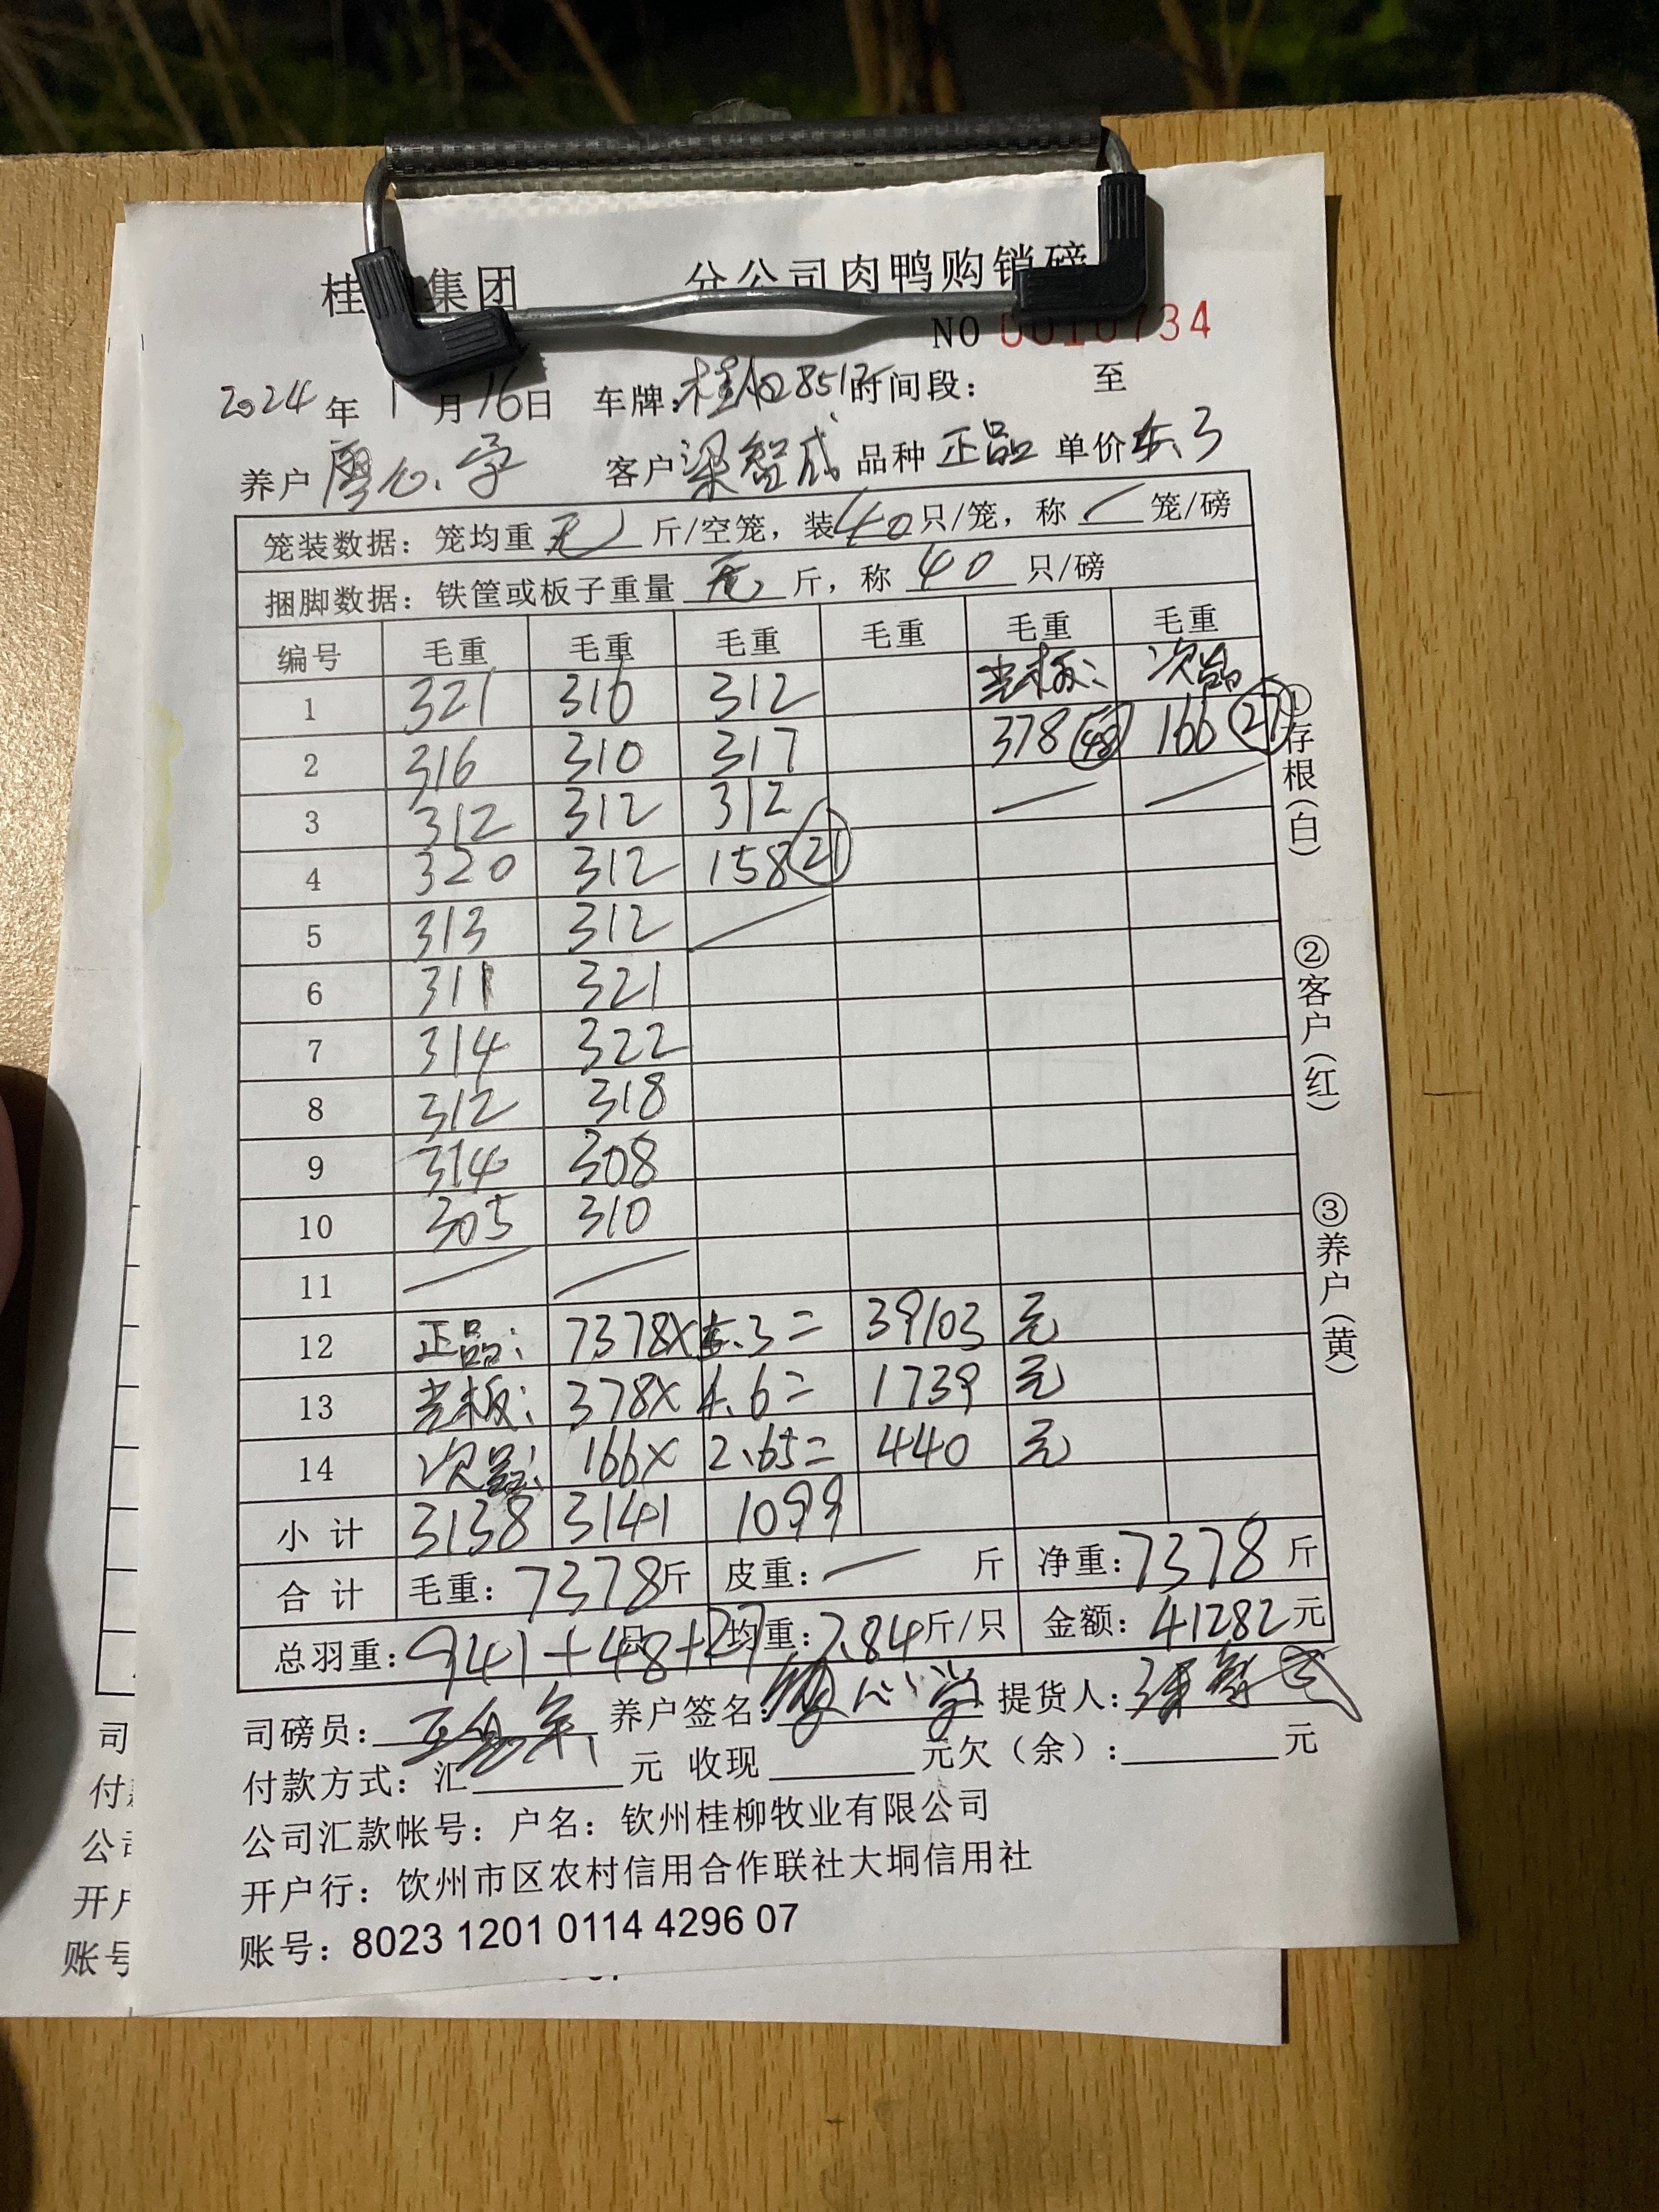 桂 集团 分公司肉鸭购销磅
NO 0010734
2024年 1月16日 车牌: 时间段: 至
养户 廖心学 客户 梁智成 品种 正品 单价 5.3
笼装数据: 笼均重 无 斤/空笼, 装 40 只/笼, 称 笼/磅
捆脚数据: 铁筐或板子重量 无 斤, 称 40 只/磅
编号 毛重 毛重 毛重 毛重 毛重 毛重
1 321 316 312 光板: 次品
2 316 310 317 378 (48) 166 (27)
3 312 312 312
4 320 312 158 (21)
5 313 312
6 311 321
7 314 322
8 312 318
9 314 308
10 305 310
11
12 正品: 7378× 5.3= 39103 元
13 光板: 378× 4.6= 1739 元
14 次品: 166× 2.65= 440 元
小计 3138 3141 1099
合计 毛重: 7378斤 皮重: 一 斤 净重: 7378 斤
总羽重: 941+48+27 均重: 7.84斤/只 金额: 41282元
司磅员: 养户签名: 廖心学 提货人: 梁智成
付款方式: 汇 元 收现 元欠(余): 元
公司汇款帐号: 户名: 钦州桂柳牧业有限公司
开户行: 钦州市区农村信用合作联社大垌信用社
账号: 8023 1201 0114 4296 07
①存根(白)
②客户(红)
③养户(黄)
司
付
公司
开户
账号